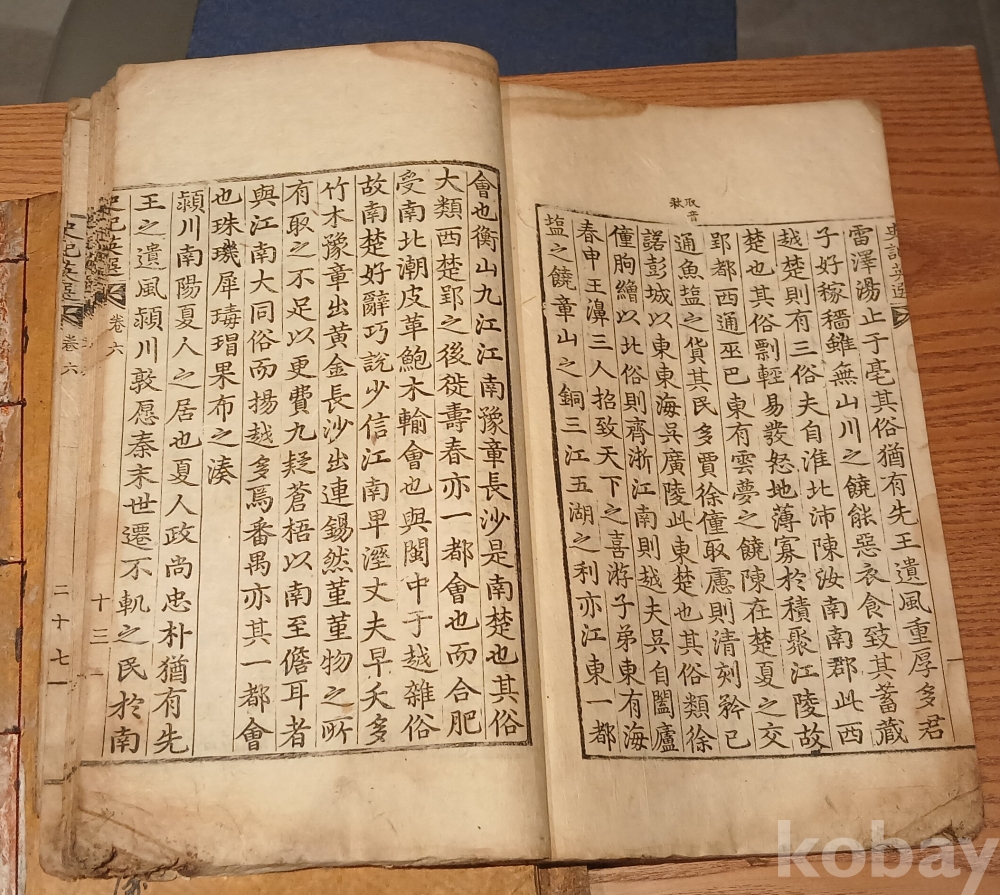 史記英選
雷澤湯止于亳其俗猶有先王遺風重厚多君
子好稼穡雖無山川之饒能惡衣食致其蓄藏
越楚則有三俗夫自淮北沛陳汝南南郡此西
楚也其俗剽輕易發怒地薄寡於積聚江陵故
郢都西通巫巴東有雲夢之饒陳在楚夏之交
取音
秋
通魚塩之貨其民多賈徐僮取慮則清刻矜已
諾彭城以東東海吳廣陵此東楚也其俗類徐
僮朐繒以北俗則齊浙江南則越夫吳自闔廬
春申王濞三人招致天下之喜游子弟東有海
塩之饒章山之銅三江五湖之利亦江東一都
會也衡山九江江南豫章長沙是南楚也其俗
大類西楚郢之後徙壽春亦一都會也而合肥
受南北潮皮革鮑木輸會也與閩中于越雜俗
故南楚好辭巧說少信江南卑溼丈夫早夭多
竹木豫章出黃金長沙出連錫然堇堇物之所
有取之不足以更費九疑蒼梧以南至儋耳者
與江南大同俗而揚越多焉番禺亦其一都會
也珠璣犀瑇瑁果布之湊
潁川南陽夏人之居也夏人政尚忠朴猶有先
王之遺風潁川敦愿秦末世遷不軌之民於南
史記英選 卷六 十三
史記英選 卷六 二十七
kobay